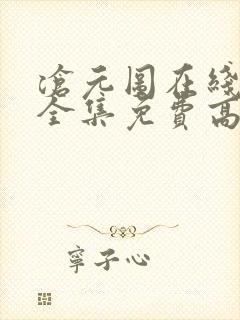 滄元图在綫
全集免費高
寧子心